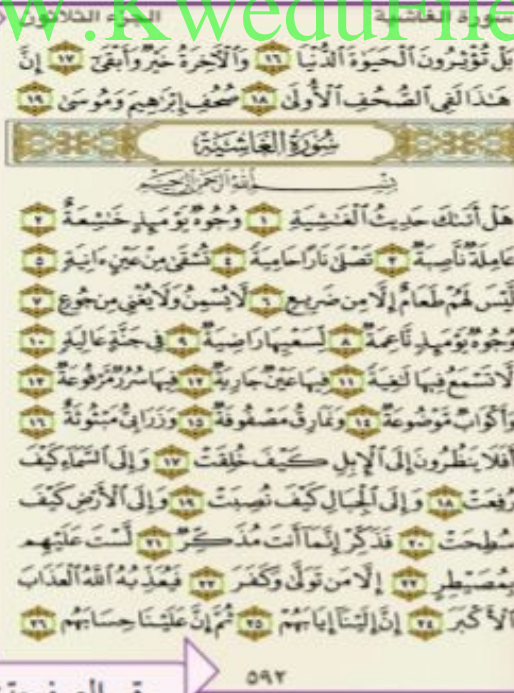 W.KweduFile
سورة الغاشية الجزء الثلاثون
بَلْ تُؤْثِرُونَ ٱلْحَيَوٰةَ ٱلدُّنْيَا ١٦ وَٱلْءَاخِرَةُ خَيْرٌ وَأَبْقَىٰٓ ١٧ إِنَّ
هَٰذَا لَفِى ٱلصُّحُفِ ٱلْأُولَىٰ ١٨ صُحُفِ إِبْرَٰهِيمَ وَمُوسَىٰ ١٩
سُورَةُ الْغَاشِيَةِ
بِسْمِ ٱللَّهِ ٱلرَّحْمَٰنِ ٱلرَّحِيمِ
هَلْ أَتَىٰكَ حَدِيثُ ٱلْغَٰشِيَةِ ١ وُجُوهٌ يَوْمَئِذٍ خَٰشِعَةٌ ٢
عَامِلَةٌ نَّاصِبَةٌ ٣ تَصْلَىٰ نَارًا حَامِيَةً ٤ تُسْقَىٰ مِنْ عَيْنٍ ءَانِيَةٍ ٥
لَّيْسَ لَهُمْ طَعَامٌ إِلَّا مِن ضَرِيعٍ ٦ لَّا يُسْمِنُ وَلَا يُغْنِى مِن جُوعٍ ٧
وُجُوهٌ يَوْمَئِذٍ نَّاعِمَةٌ ٨ لِّسَعْيِهَا رَاضِيَةٌ ٩ فِى جَنَّةٍ عَالِيَةٍ ١٠
لَّا تَسْمَعُ فِيهَا لَٰغِيَةً ١١ فِيهَا عَيْنٌ جَارِيَةٌ ١٢ فِيهَا سُرُرٌ مَّرْفُوعَةٌ ١٣
وَأَكْوَابٌ مَّوْضُوعَةٌ ١٤ وَنَمَارِقُ مَصْفُوفَةٌ ١٥ وَزَرَابِىُّ مَبْثُوثَةٌ ١٦
أَفَلَا يَنظُرُونَ إِلَى ٱلْإِبِلِ كَيْفَ خُلِقَتْ ١٧ وَإِلَى ٱلسَّمَآءِ كَيْفَ
رُفِعَتْ ١٨ وَإِلَى ٱلْجِبَالِ كَيْفَ نُصِبَتْ ١٩ وَإِلَى ٱلْأَرْضِ كَيْفَ
سُطِحَتْ ٢٠ فَذَكِّرْ إِنَّمَآ أَنتَ مُذَكِّرٌ ٢١ لَّسْتَ عَلَيْهِم
بِمُصَيْطِرٍ ٢٢ إِلَّا مَن تَوَلَّىٰ وَكَفَرَ ٢٣ فَيُعَذِّبُهُ ٱللَّهُ ٱلْعَذَابَ
ٱلْأَكْبَرَ ٢٤ إِنَّ إِلَيْنَآ إِيَابَهُمْ ٢٥ ثُمَّ إِنَّ عَلَيْنَا حِسَابَهُم ٢٦
٥٩٢